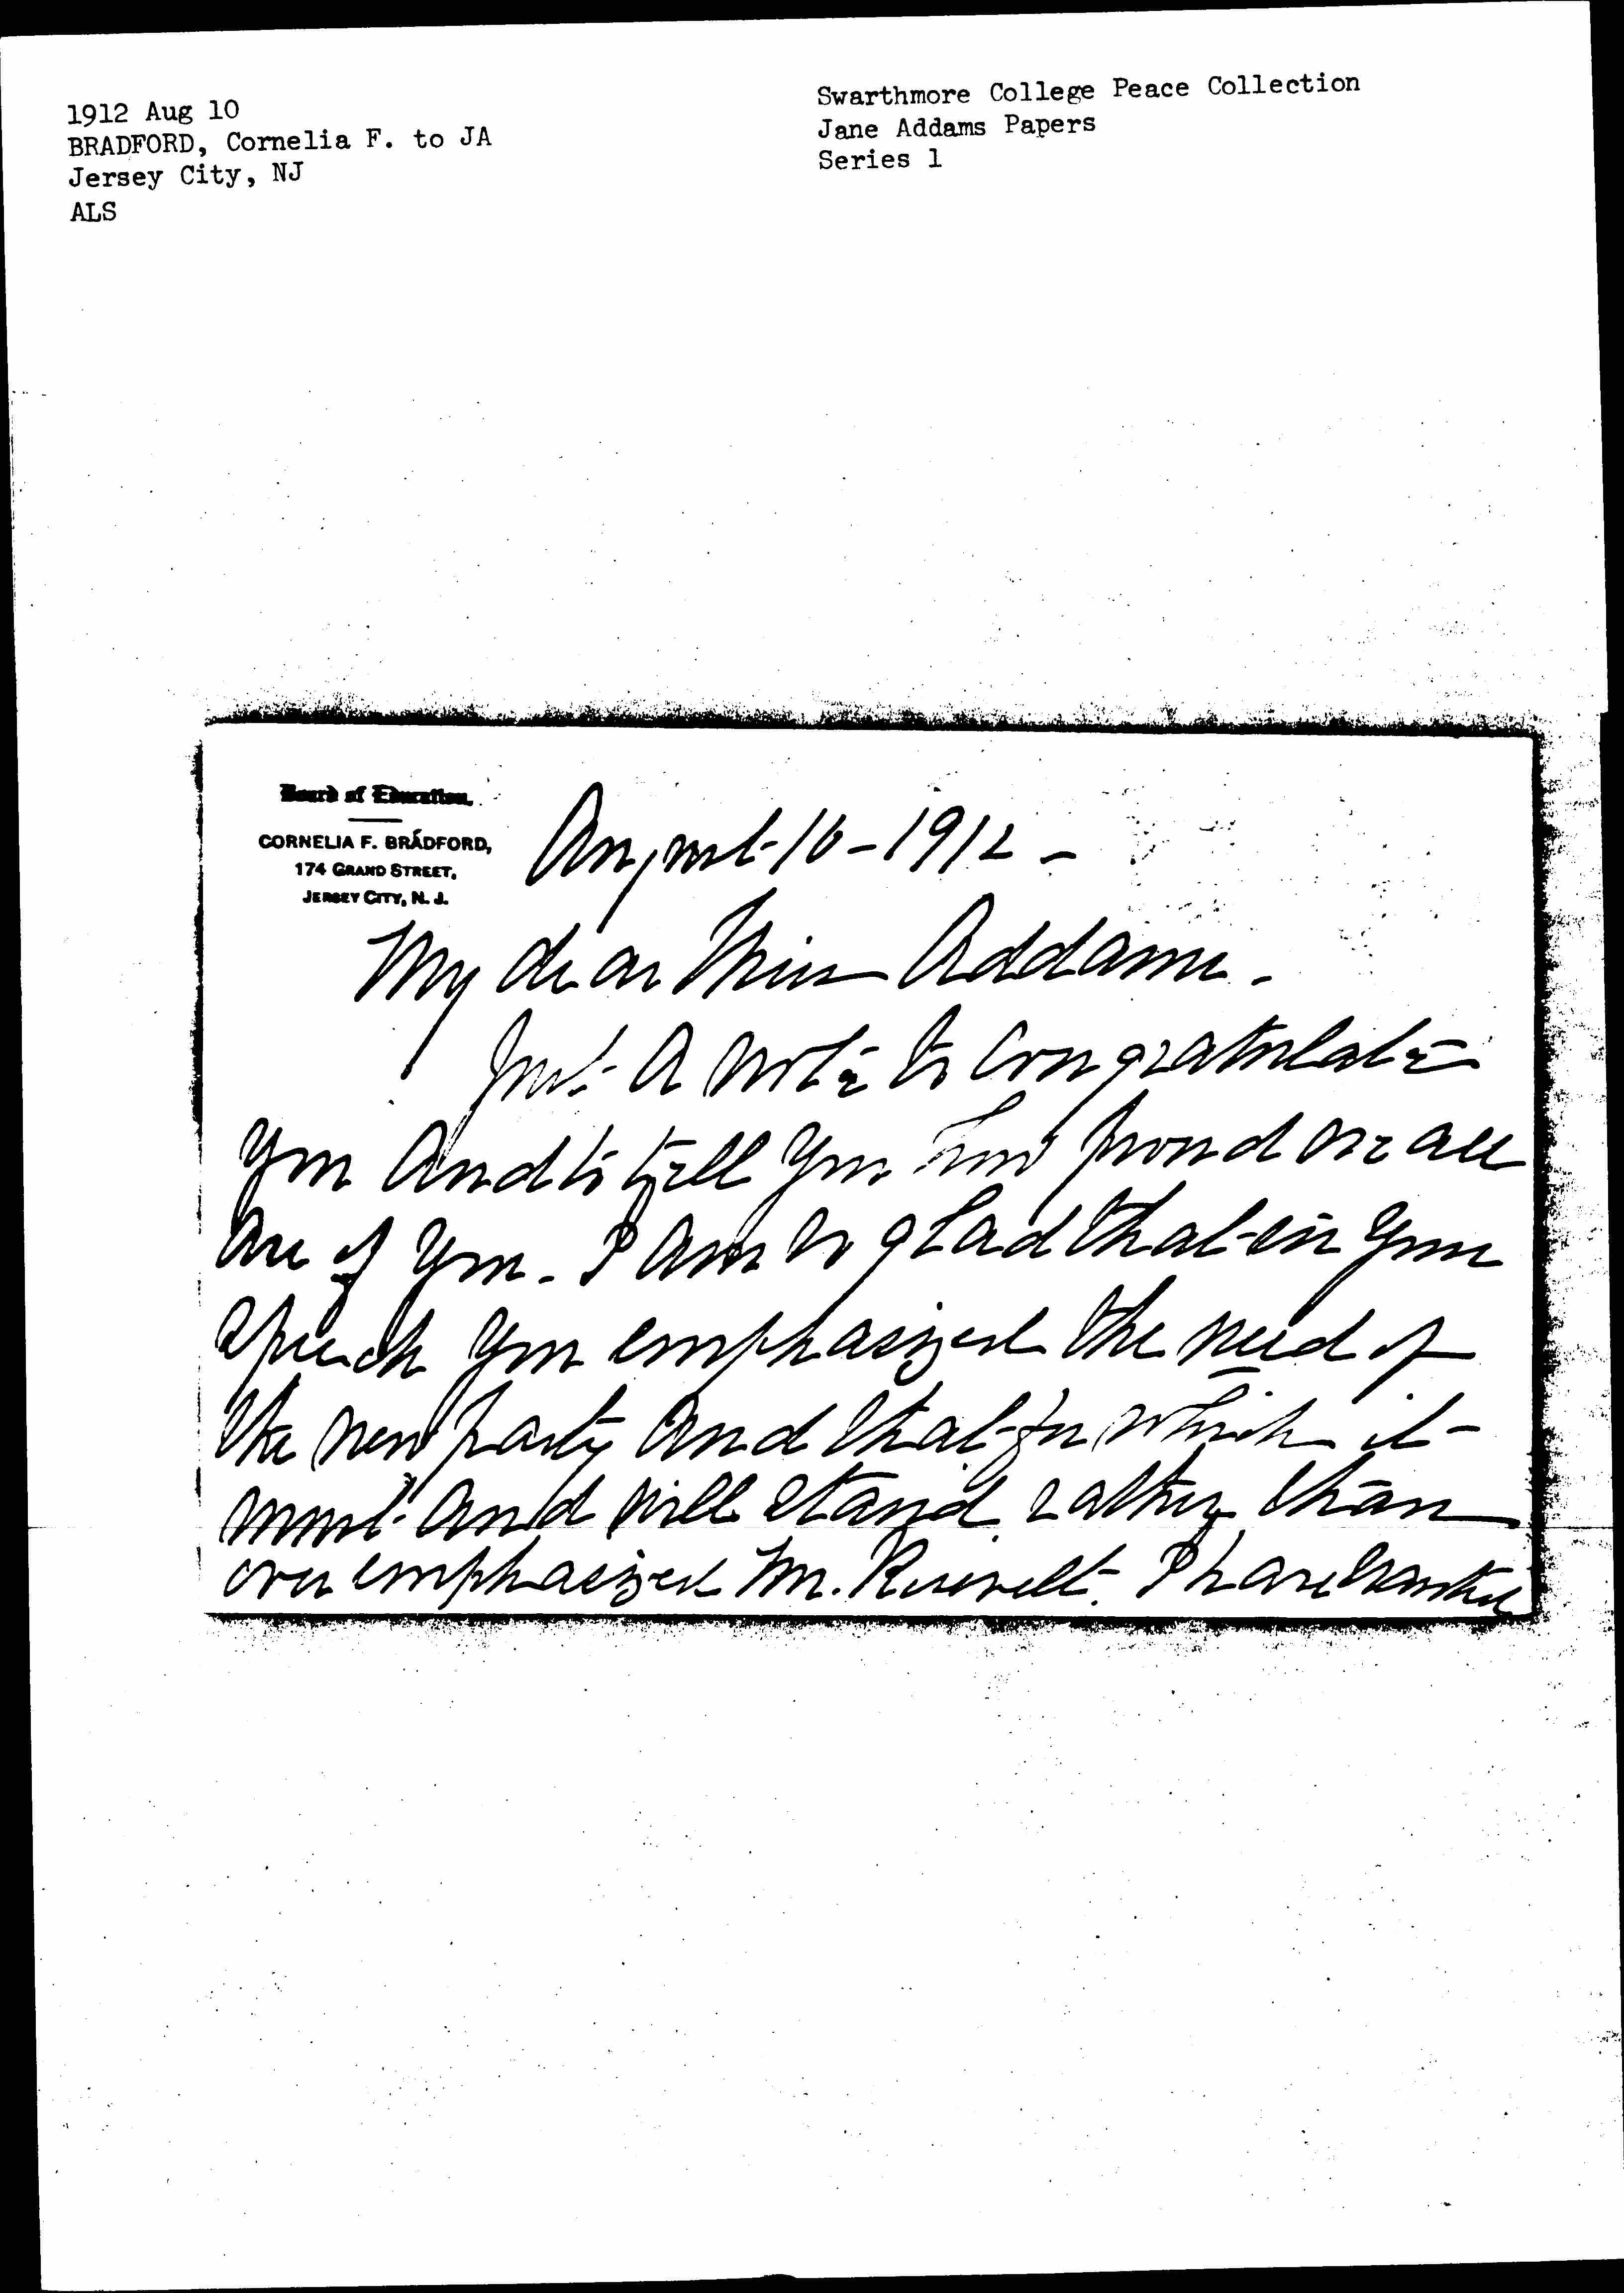 1912 Aug 10
BRADFORD, Cornelia F. to JA
Jersey City, NJ
ALS
Swarthmore College Peace Collection
Jane Addams Papers
Series 1
Board of Education.
CORNELIA F. BRADFORD,
174 GRAND STREET,
JERSEY CITY, N. J.
August 10 - 1912 -
My dear Miss Addams.
Just a note to congratulate
you and to tell you how proud we all
are of you. I am so glad that in your
speech you emphasized the need of
the new party and that for which it
must and will stand rather than
over emphasized Mr. Roosevelt. I have